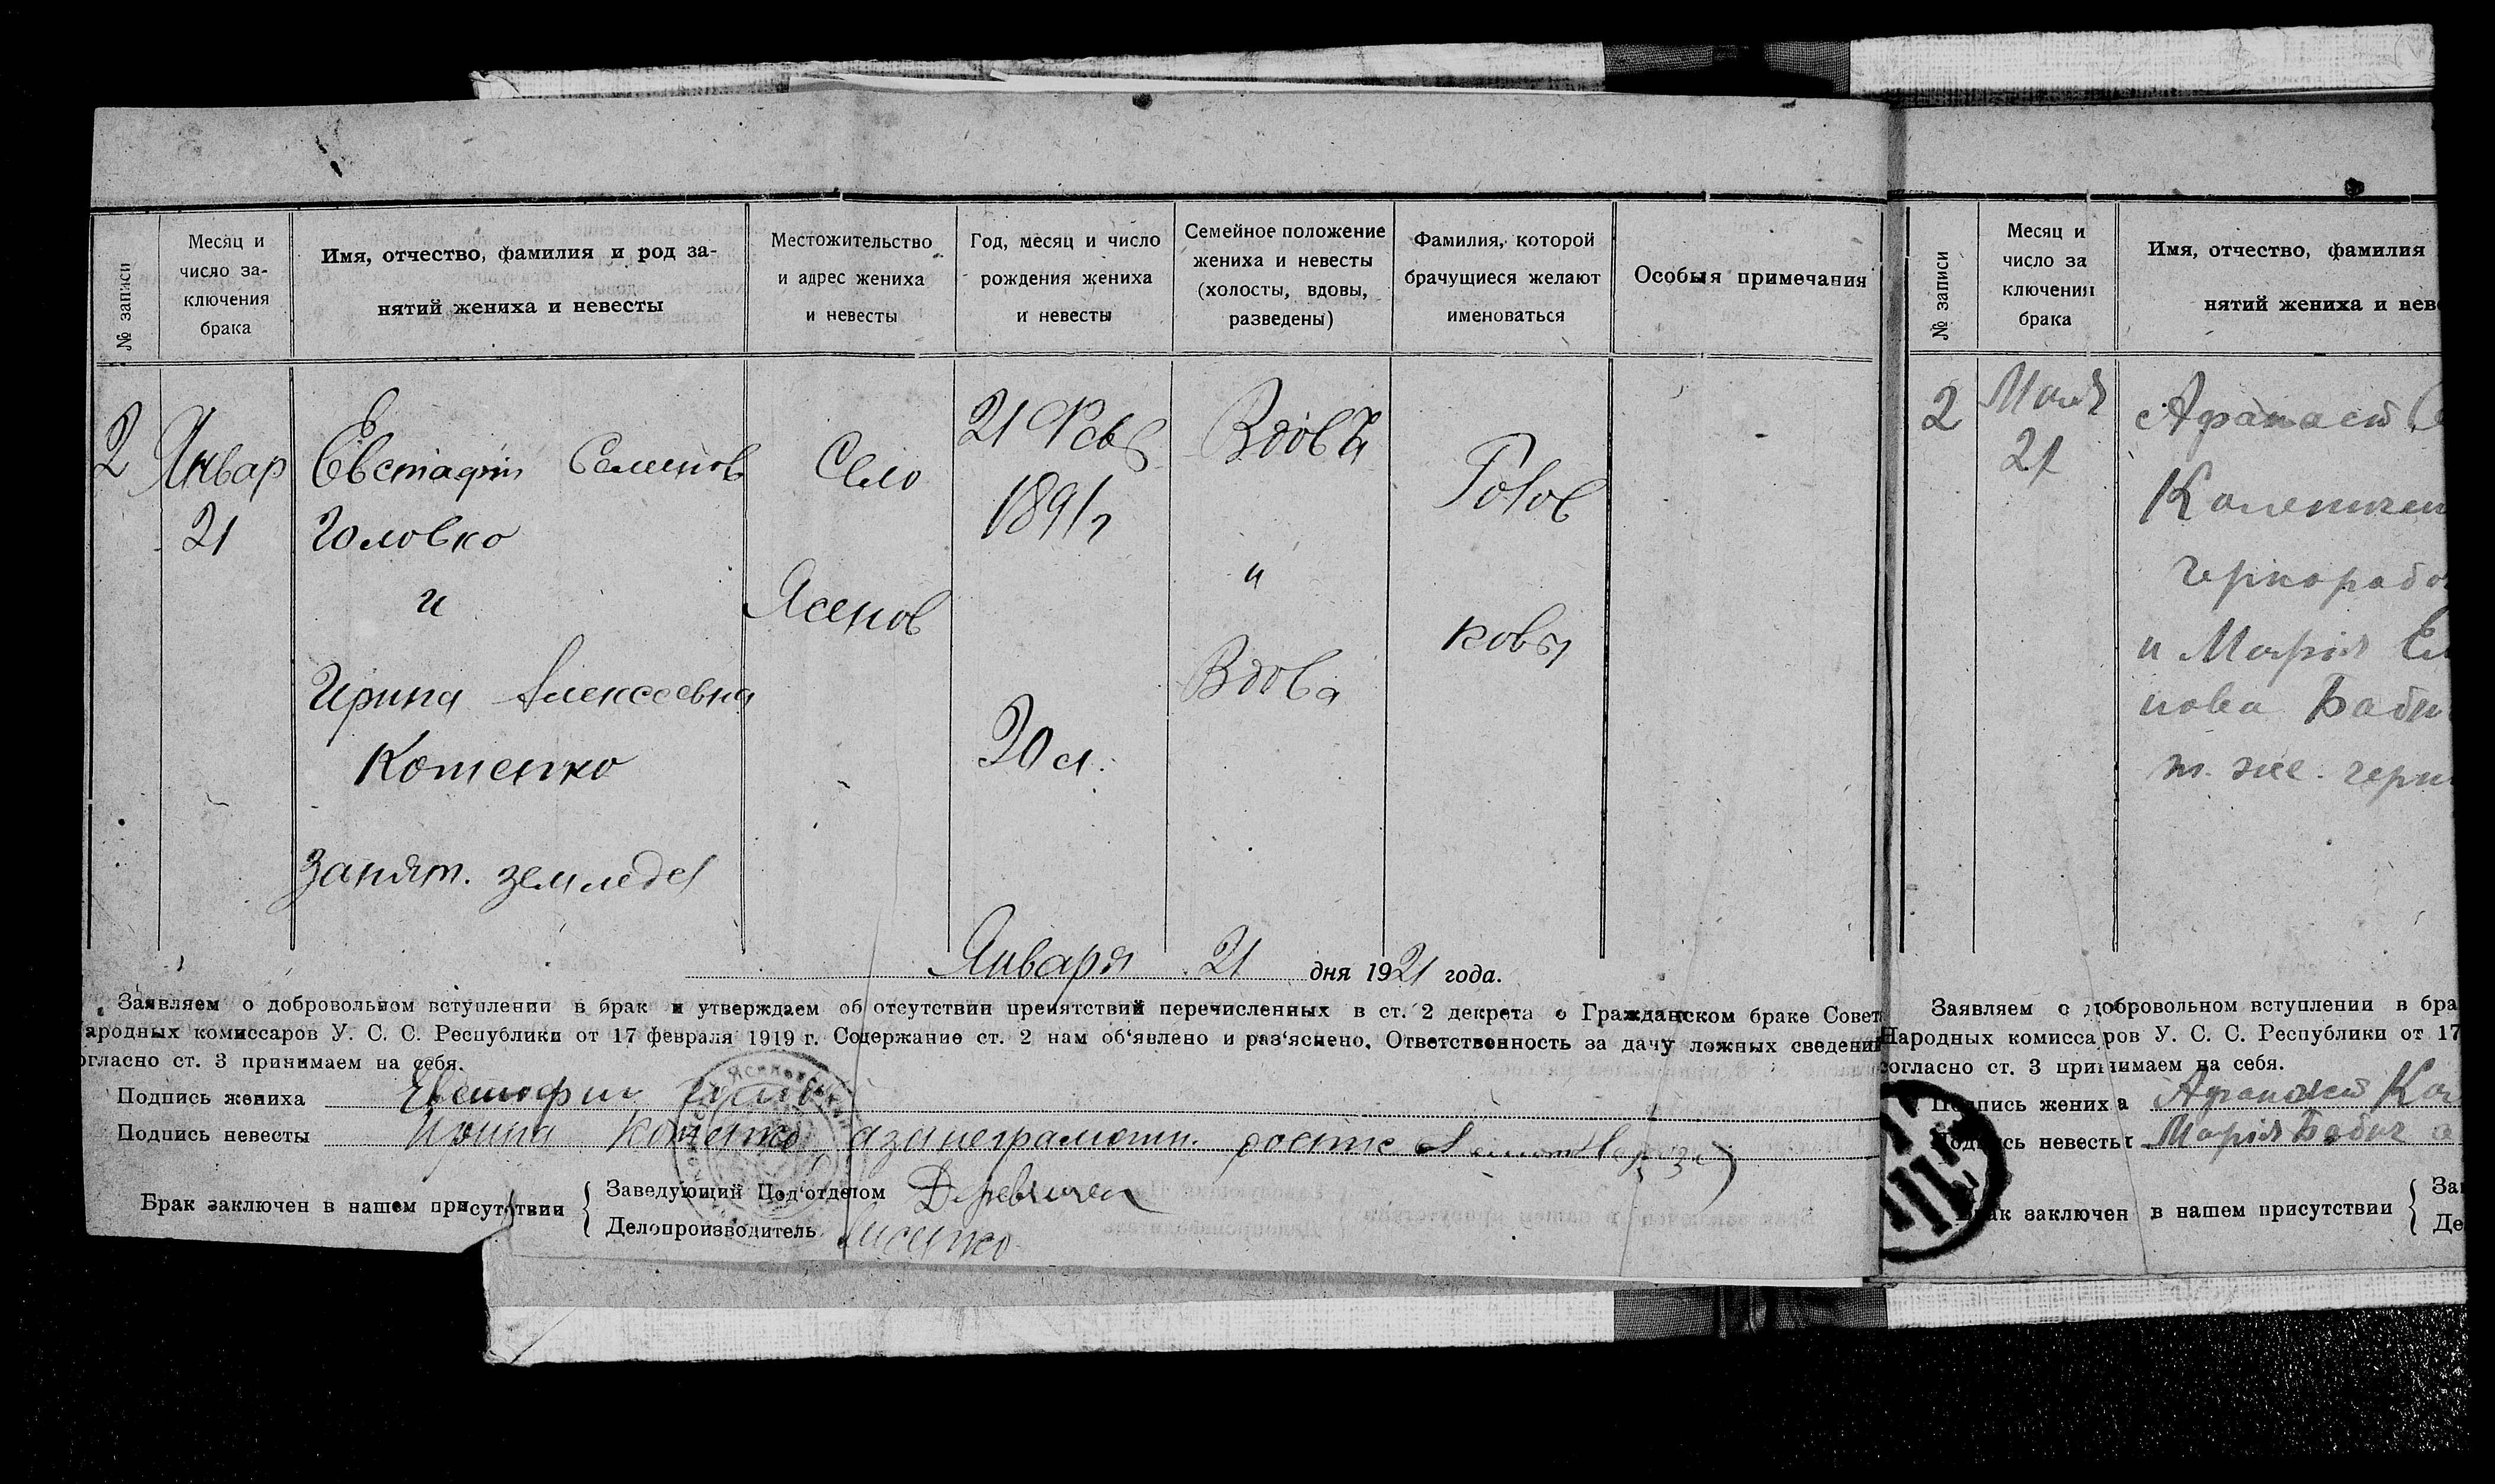 № записи
Месяц и число за-ключения брака
Имя, отчество, фамилия и род за-
нятий жениха и невесты
Местожительство
и адрес жениха
и невесты
Год, месяц и число
рождения жениха
и невесты
Семейное положение
жениха и невесты
(холосты, вдовы,
разведены)
Фамилия, которой
брачущиеся желают
именоваться
Особыя примечания
2
Январ
21
Евстафий Семенов
Головко
и
Ирина Алексеевна
Котенко
Занят. землед
Село
Ясенов
21 Фев
1891 г
20 л.
Вдовц
"
Вдова
Голов
ковы
Января 21 дня 1921 года.
Заявляем о добровольном вступлении в брак и утверждаем об отсутствии препятствий перечисленных в ст. 2 декрета о Гражданском браке Совет
ародных комиссаров У. С. С. Республики от 17 февраля 1919 г. Содержание ст. 2 нам об'явлено и раз'яснено. Ответственность за дачу ложных сведений
огласно ст. 3 принимаем на себя.
Подпись жениха Евстафий
Подпись невесты Ирина Котенко, а за неграмотн.
Брак заключен в нашем присутствии
Заведующий Под'отделом
Делопроизводитель Лисенко
№ записи
Месяц и
число за
ключения
брака
Имя, отчество, фамилия
нятий жениха и нев
2
21
Афанасий
чернорабо
и Мария Ем
нова Бабич
т. же. черн
Заявляем о добровольном вступлении в бра
Народных комиссаров У. С. С. Республики от 17
согласно ст. 3 принимаем на себя.
Подпись жениха Афанасий Ко
Подпись невесты Мария Бабич а
Брак заключен в нашем присутствии
За
Де